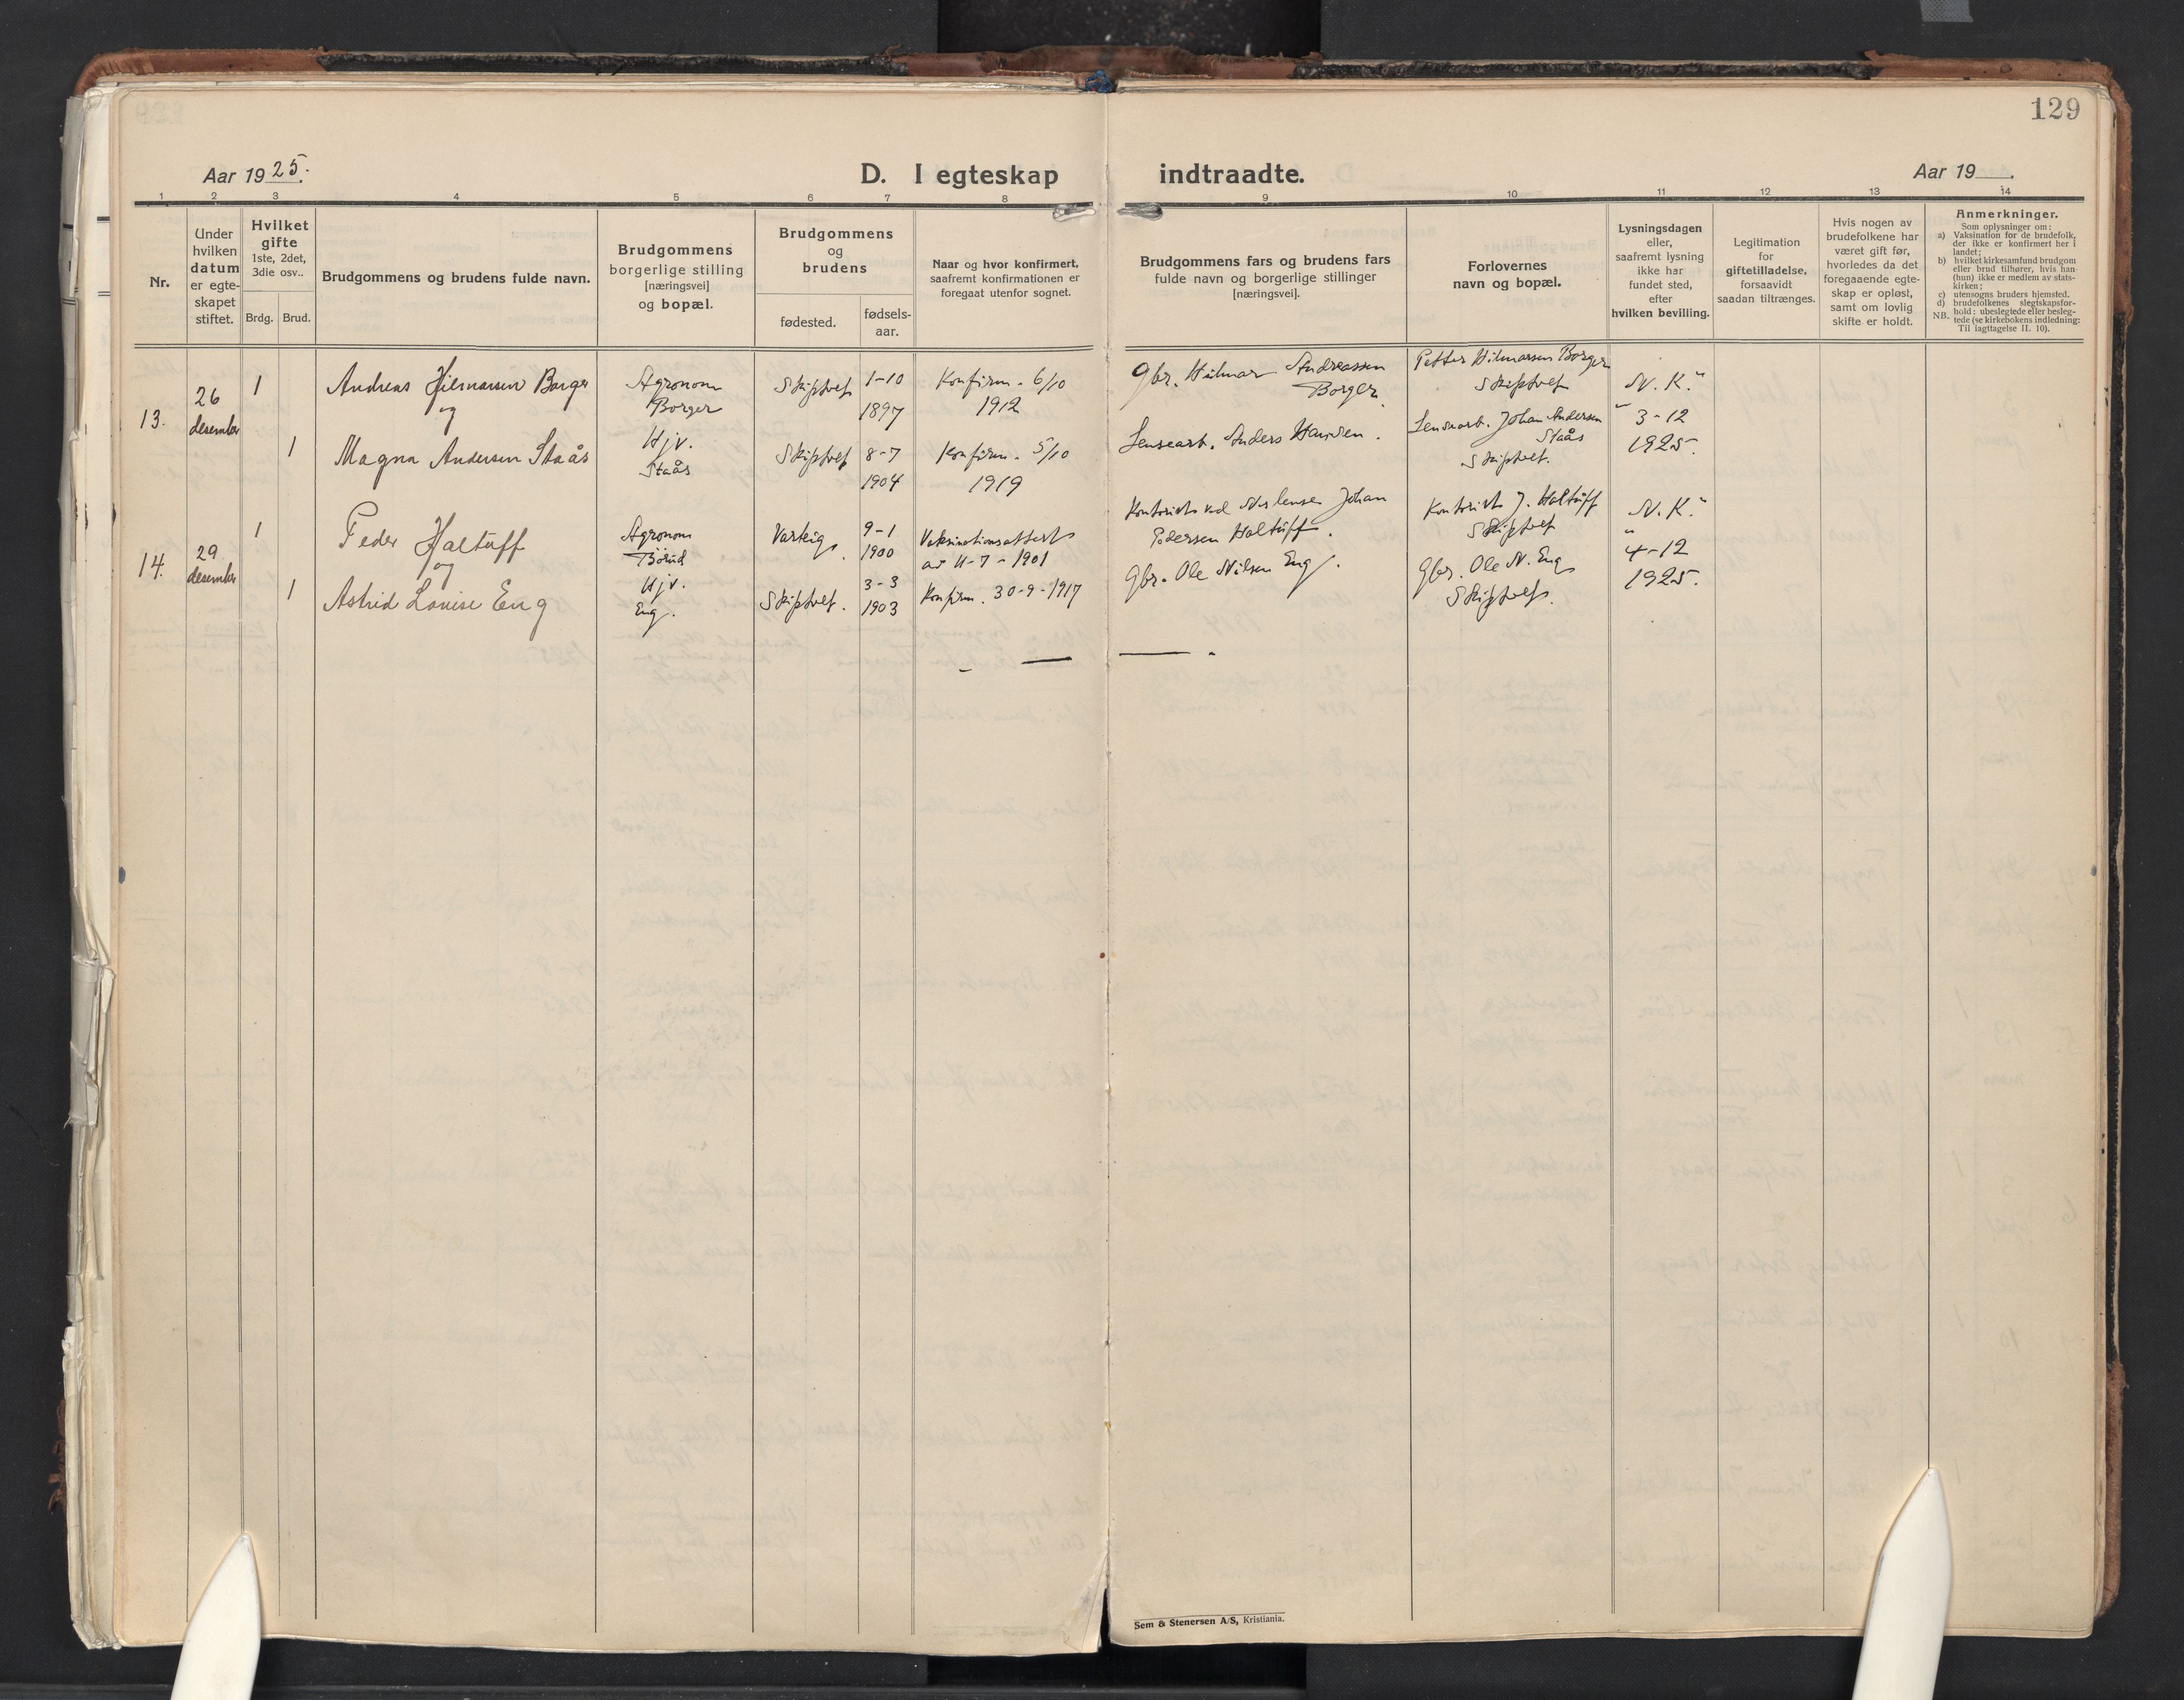 129
Aar 1925.
D. I egteskap indtraadte.
Aar 19
1 2 3 4 5 6 7 8 9 10 11 12 13 14
Nr.
Under
hvilken
datum
er egte-
skapet
stiftet.
Hvilket
gifte
1ste, 2det,
3die osv..
Brdg. Brud.
Brudgommens og brudens fulde navn.
Brudgommens
borgerlige stilling
[næringsvei]
og bopæl.
Brudgommens
og
brudens
fødested.
fødsels-
aar.
Naar og hvor konfirmert,
saafremt konfirmationen er
foregaat utenfor sognet.
Brudgommens fars og brudens fars
fulde navn og borgerlige stillinger
[næringsvei].
Forlovernes
navn og bopæl.
Lysningsdagen
eller,
saafremt lysning
ikke har
fundet sted,
efter
hvilken bevilling.
Legitimation
for
giftetilladelse,
forsaavidt
saadan tiltrænges.
Hvis nogen av
brudefolkene har
været gift før,
hvorledes da det
foregaaende egte-
skap er opløst,
samt om lovlig
skifte er holdt.
Anmerkninger.
Som oplysninger om:
a) Vaksination for de brudefolk,
der ikke er konfirmert her i
landet;
b) hvilket kirkesamfund brudgom
eller brud tilhører, hvis han
(hun) ikke er medlem av stats-
kirken;
c) utensogns bruders hjemsted.
d) brudefolkenes slegtskapsfor-
hold: ubeslegtede eller besleg-
NB. tede (se kirkebokens indledning:
Til iagttagelse II. 10).
13.
26
desember
1
Andreas Hilmarsen Borger
og
1
Magna Andersen Staås
Agronom
Borger
Hjv.
Staås
Skiptvet
Skiptvet
1-10
1897
8-7
1904
Konfirm. 6/10
1912
Konfirm. 5/10
1919
Gbr. Hilmar Andreassen
Borger.
Lensearb. Anders Hansen.
Petter Hilmarsen Borger
Skiptvet
Lensearb. Johan Andersen
Staås
Skiptvet.
"N. K."
3-12
1925.
14.
29
desember
1
Peder Haltuff
og
1
Astrid Louise Eng
Agronom
Børud
Hjv.
Eng.
Varteig.
Skiptvet.
9-1
1900
3-3
1903
Vaksinationsattest
av 11-7-1901
Konfirm. 30-9-1917
Kontorist ved lense Johan
Pedersen Haltuff.
Gbr. Ole Nilsen Eng.
Kontorist J. Haltuff
Skiptvet
Gbr. Ole N. Eng
Skiptvet.
"N. K."
4-12
1925.
Sem & Stenersen A/S, Kristiania.